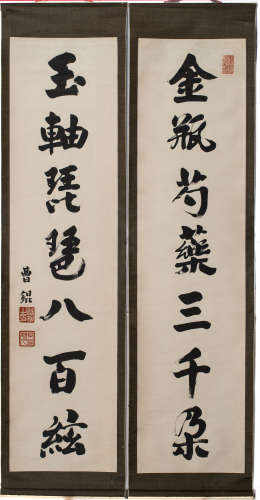 金瓶芍藥三千朶
玉軸琵琶八百絃
曹錕